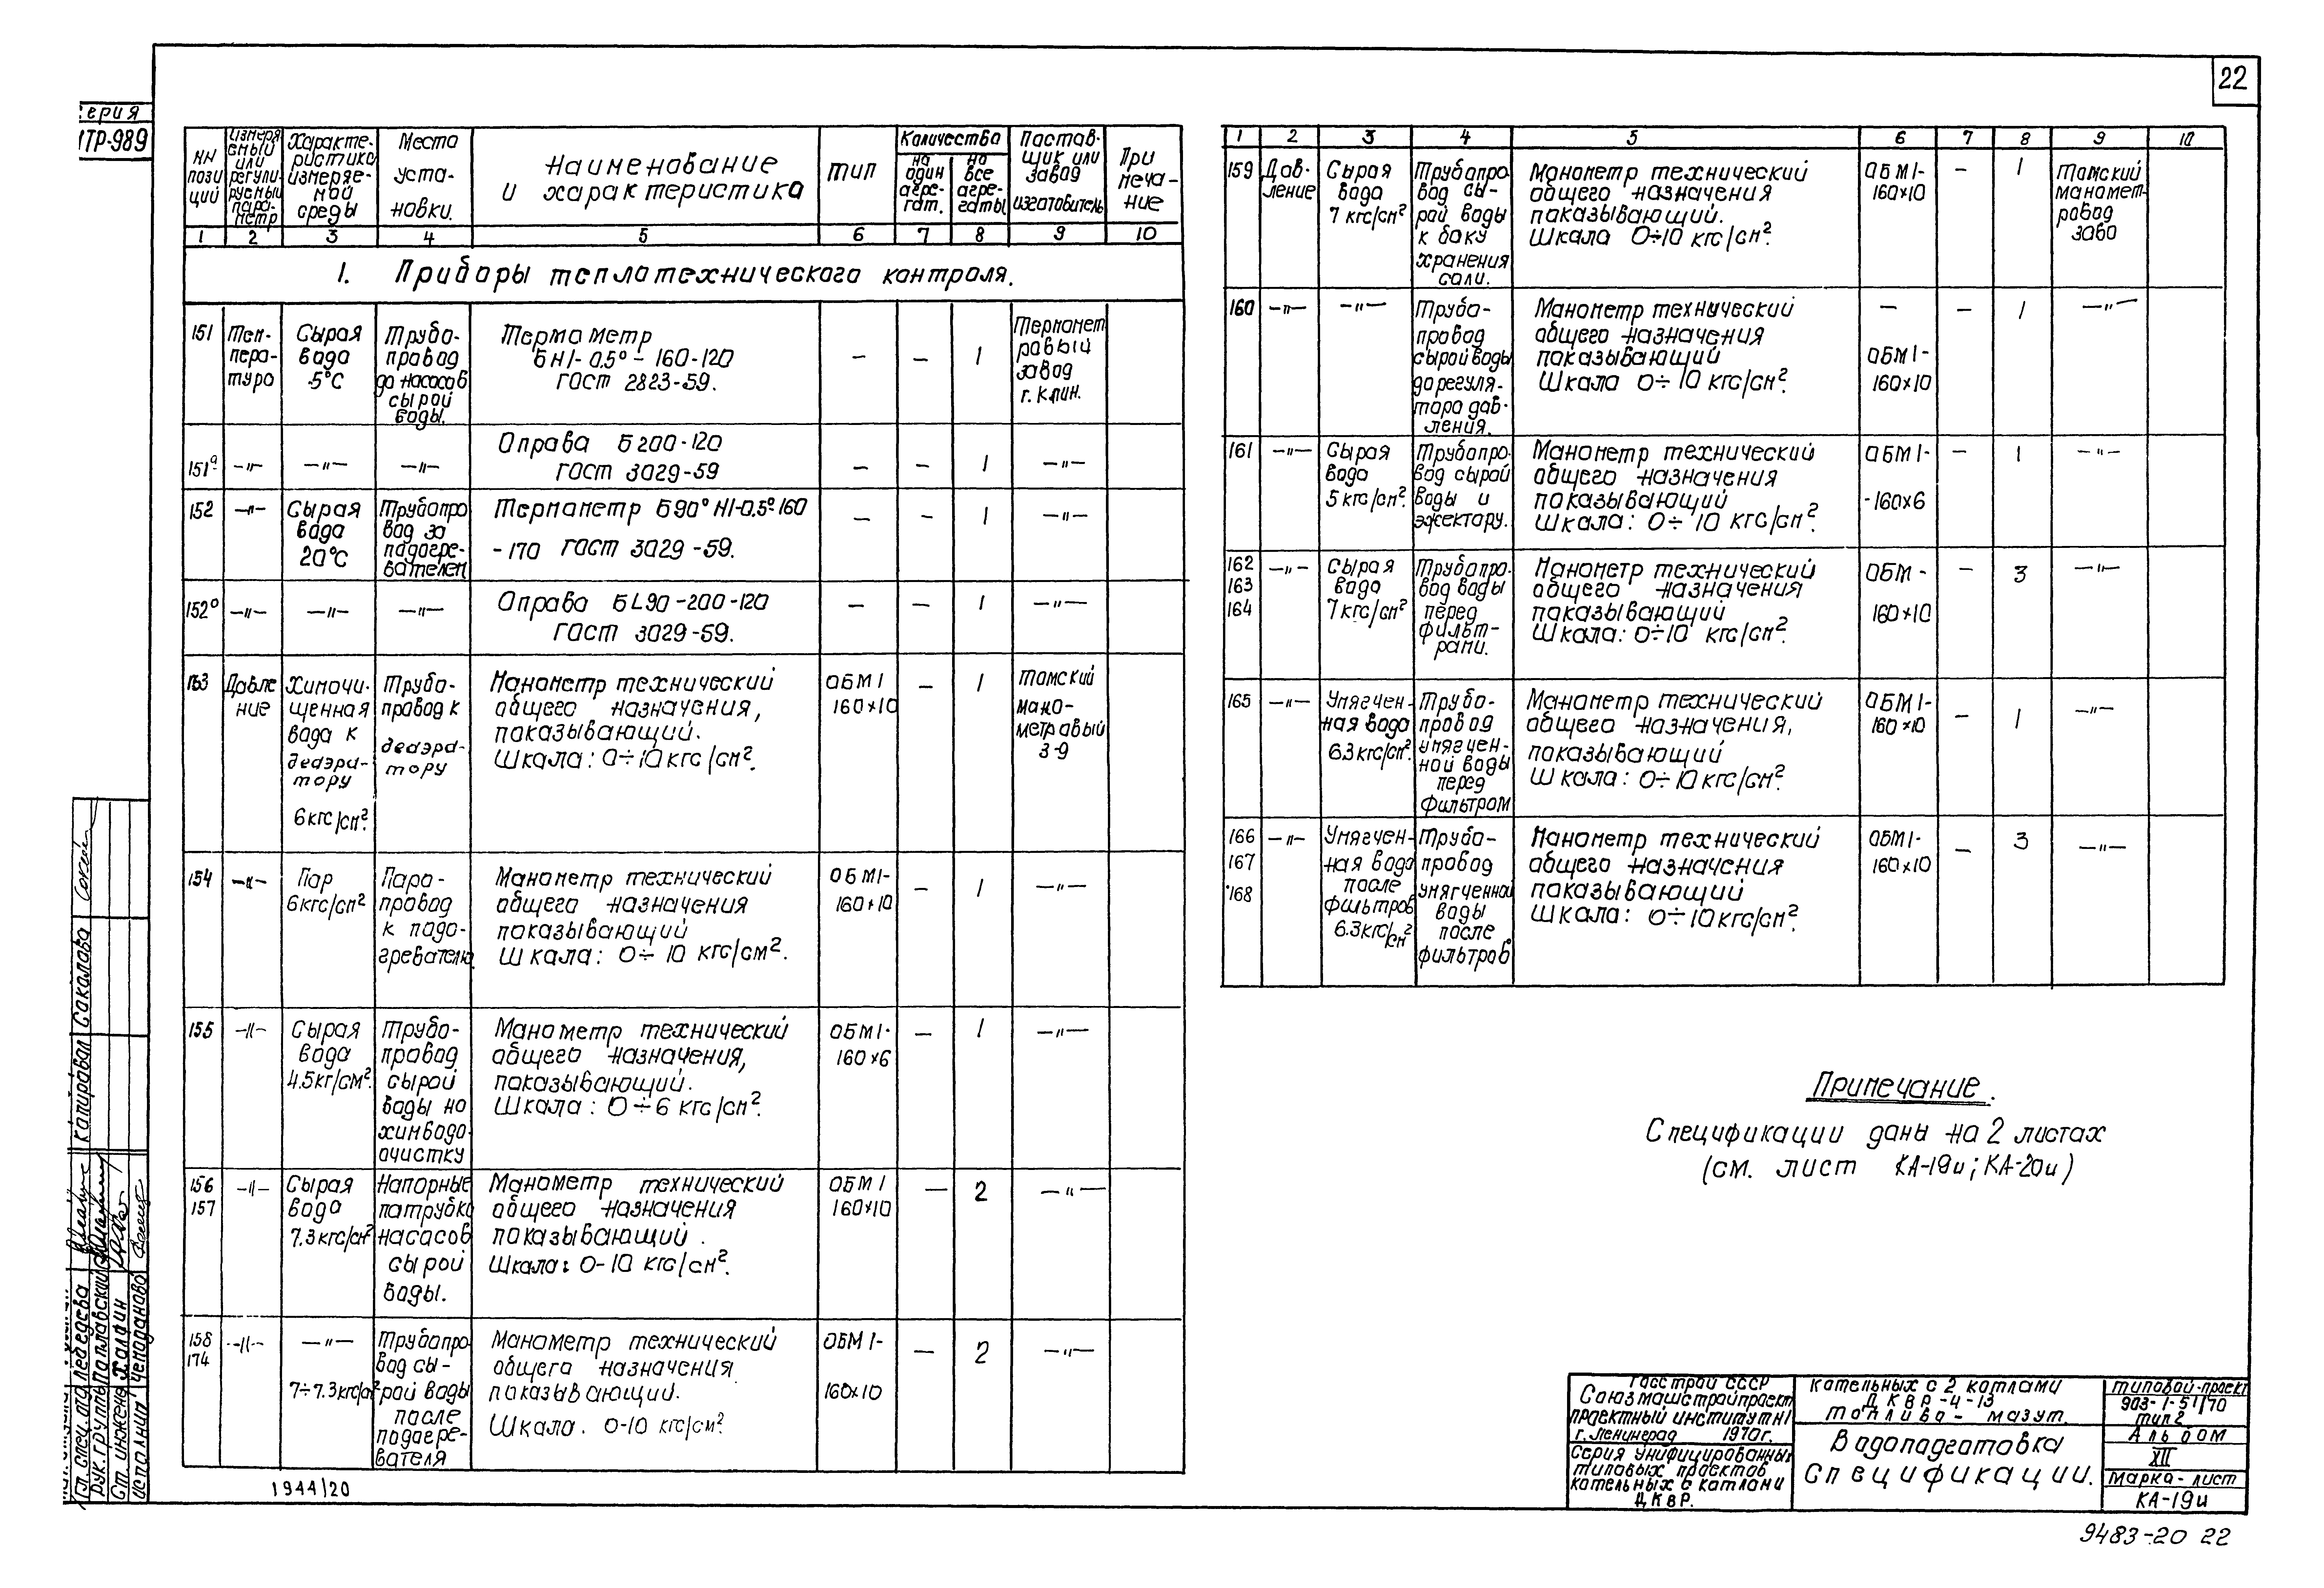 22
серия
ТР-989
NN позиций | Измеряемый или регулируемый параметр | Характеристика измеряемой среды | Место установки. | Наименование и характеристика | Тип | Количество на один агрегат. | на все агрегаты | Поставщик или завод изготовитель | Примечание
1 2 3 4 5 6 7 8 9 10
1. Приборы теплотехнического контроля.
151 | Температура | Сырая вода -5°С | Трубопровод до насосов сырой воды. | Термометр БН1-0.5°-160-120 ГОСТ 2823-59. | — | — | 1 | Термометровый завод г. Клин.
151а | —"— | —"— | —"— | Оправа Б200-120 ГОСТ 3029-59 | — | — | 1 | —"—
152 | —"— | Сырая вода 20°С | Трубопровод за подогревателем | Термометр Б90°Н1-0.5°-160-170 ГОСТ 3029-59. | — | — | 1 | —"—
152а | —"— | —"— | —"— | Оправа БL90-200-120 ГОСТ 3029-59. | — | — | 1 | —"—
153 | Давление | Химочищенная вода к деаэратору 6кгс/см². | Трубопровод к деаэратору | Манометр технический общего назначения, показывающий. Шкала: 0÷10кгс/см². | ОБМ1 160×10 | — | 1 | Томский манометровый з-д
154 | —"— | Пар 6кгс/см² | Паропровод к подогревателю. | Манометр технический общего назначения показывающий Шкала: 0÷10 кгс/см². | ОБМ1-160×10 | — | 1 | —"—
155 | —"— | Сырая вода 4.5кг/см². | Трубопровод сырой воды на химводоочистку | Манометр технический общего назначения, показывающий. Шкала: 0÷6 кгс/см². | ОБМ1-160×6 | — | 1 | —"—
156 157 | —"— | Сырая вода 7.3кгс/см² | Напорные патрубки насосов сырой воды. | Манометр технический общего назначения показывающий. Шкала: 0-10 кгс/см². | ОБМ1 160×10 | — | 2 | —"—
158 174 | —"— | —"— 7÷7.3кгс/см² | Трубопровод сырой воды после подогревателя | Манометр технический общего назначения показывающий. Шкала. 0-10 кгс/см². | ОБМ1-160×10 | — | 2 | —"—
1944/20
1 2 3 4 5 6 7 8 9 10
159 | Давление | Сырая вода 7 кгс/см² | Трубопровод сырой воды к баку хранения соли. | Манометр технический общего назначения показывающий. Шкала 0÷10 кгс/см². | ОБМ1-160×10 | — | 1 | Томский манометровод заво
160 | —"— | —"— | Трубопровод сырой воды до регулятора давления. | Манометр технический общего назначения показывающий Шкала 0÷10 кгс/см². | — ОБМ1-160×10 | — | 1 | —"—
161 | —"— | Сырая вода 5кгс/см². | Трубопровод сырой воды и эжектару. | Манометр технический общего назначения показывающий Шкала: 0÷10 кгс/см². | ОБМ1--160×6 | — | 1 | —"—
162 163 164 | —"— | Сырая вода 7кгс/см² | Трубопровод воды перед фильтрами. | Манометр технический общего назначения показывающий Шкала: 0÷10 кгс/см². | ОБМ-160×10 | — | 3 | —"—
165 | —"— | Умягченная вода 6.3кгс/см². | Трубопровод умягченной воды перед фильтром | Манометр технический общего назначения, показывающий Шкала: 0÷10кгс/см². | ОБМ1-160×10 | — | 1 | —"—
166 167 168 | —"— | Умягченная вода после фильтров 6.3кгс/см² | Трубопровод умягченной воды после фильтров | Манометр технический общего назначения показывающий Шкала: 0÷10кгс/см². | ОБМ1-160×10 | — | 3 | —"—
Примечание.
Спецификации даны на 2 листах
(см. лист КА-19и; КА-20и)
Госстрой СССР
Союзмашстройпроект
проектный институт N1
г. Ленинград 1970г.
Серия унифицированных
типовых проектов
котельных с котлами
ДКВР.
Котельных с 2 котлами
ДКВР-4-13
топливо- мазут.
Водоподготовка
Спецификации.
типовой-проект
903-1-51/70
тип 2
Альбом
XII
Марка-лист
КА-19и
9483-20 22
Копировал Соколова
Гл. спец. отд. Лебедева
Рук. группы Поплавский
Ст. инженер Халфин
Исполнит. Чемоданова